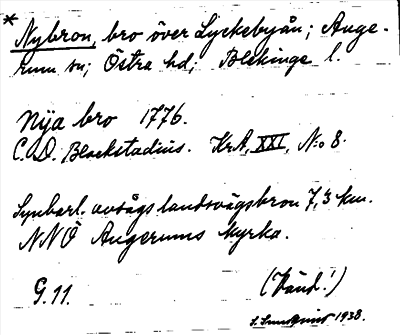 * Nybron, bro över Lyckebyån; Auge-
rum sn; Östra hd; Blekinge l.
Nya bro 1776.
C. D. Blackstadius. KrA, XXI, No 8.
Synbarl. avsågs landsvägsbron 7,3 km.
NNÖ Augerums kyrka.
G. 11. (Känd!)
S. Sundquist 1938.